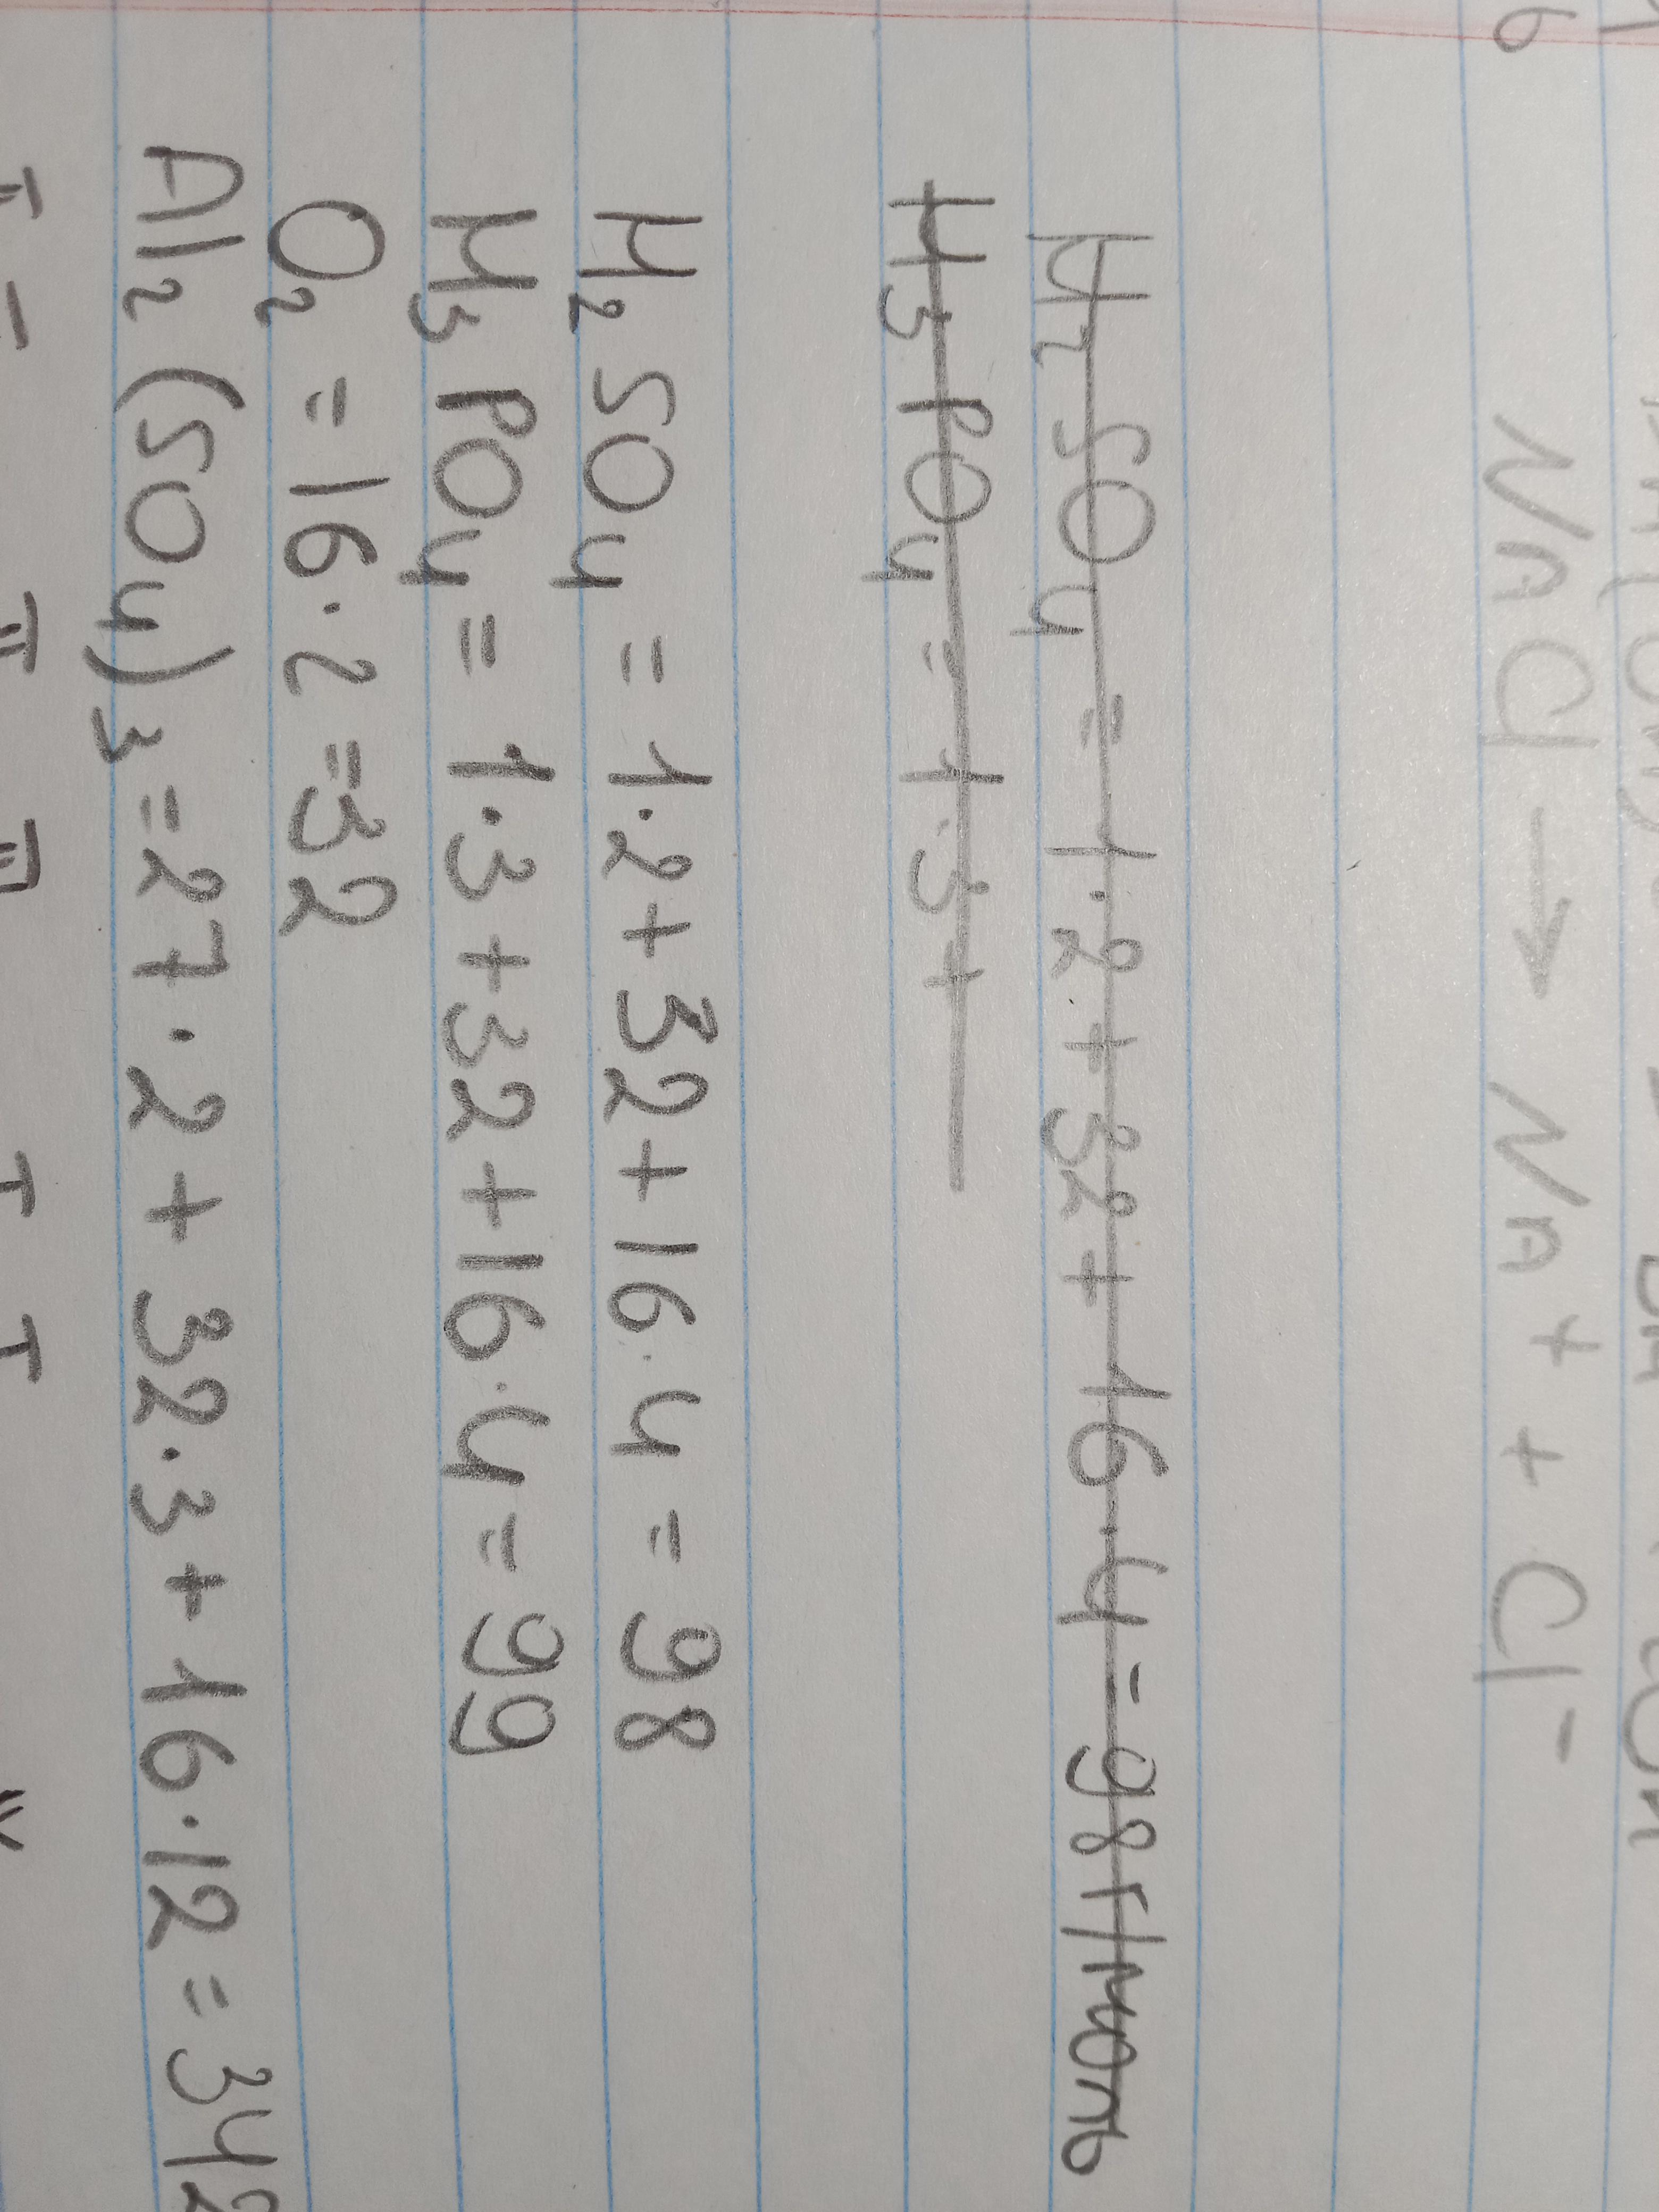 NaCl → Na + + Cl -
H₂SO₄ = 1·2+32+16·4=98г/моль
H₃PO₄ = 1·3+
H₂SO₄ = 1·2+32+16·4=98
H₃PO₄ = 1·3+32+16·4=99
O₂ = 16·2=32
Al₂(SO₄)₃=27·2+32·3+16·12=342